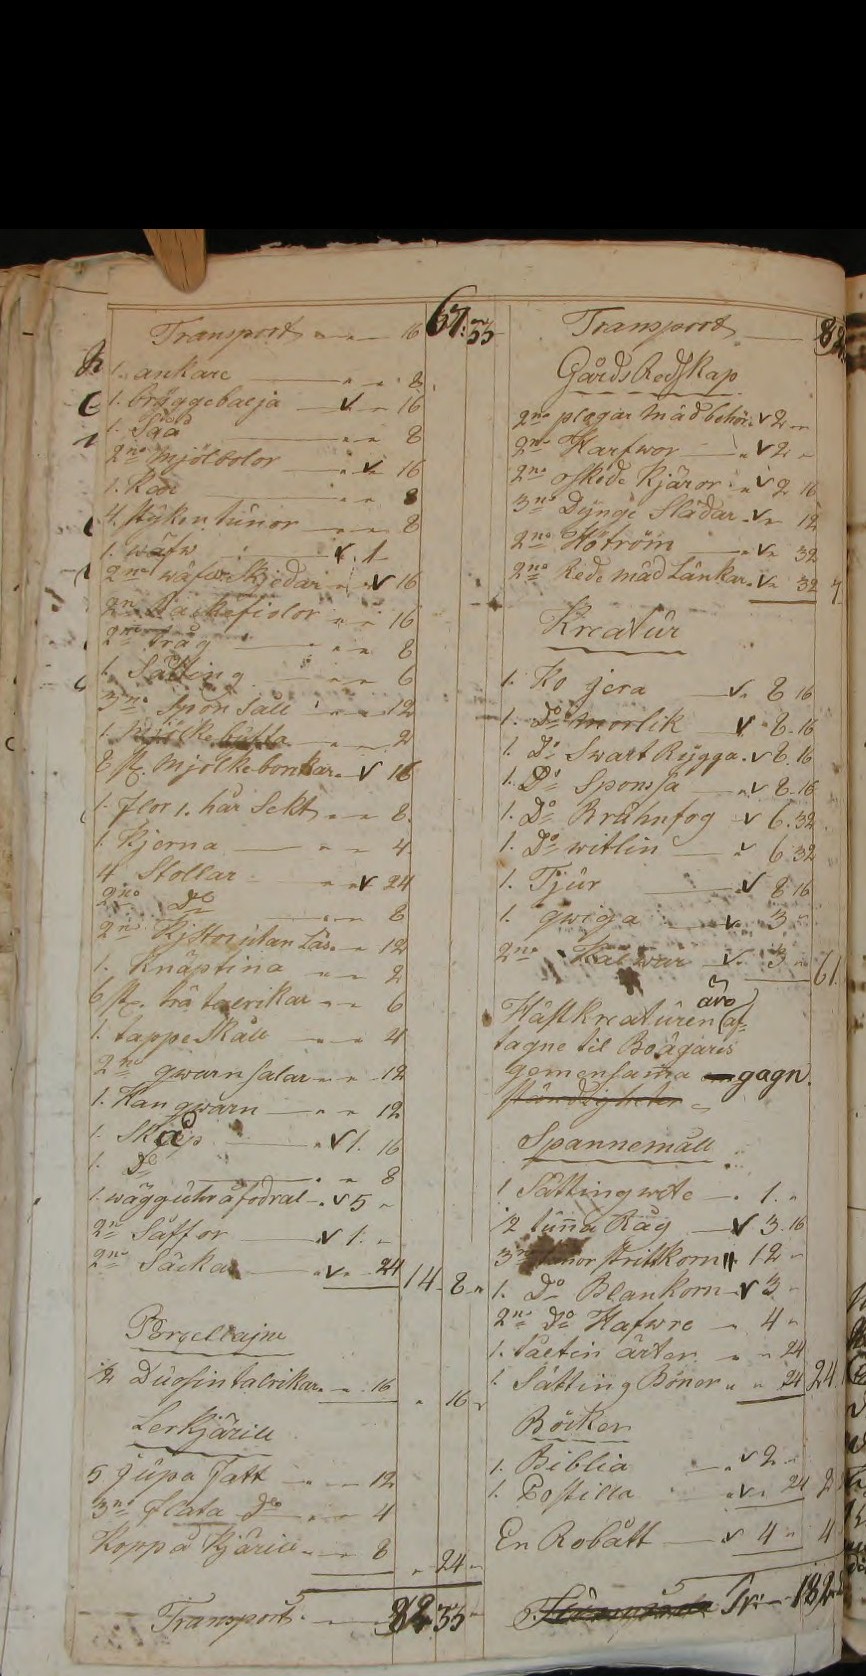 Transport - - - 16 67:33
1. ankare - - 8.
1. bryggebalja v - 16
1. Såå - - 8
2no mjöltolor - v 16
1. Kar - - 8
4 stÿken tunor - - 8
1. wäfw v. 1 -
2no wäfwe Kjedar - v 16
2no - - 16
2no Tråg - - 8
1. Sätting - - 6
3no Spon Såll - - 12
1. Mjölke bÿtta - - 2
8 st. Mjölkebonkar - v 16
1. flor 1. hår Sekt - - 8.
1. Kjerna - - 4.
4 Stollar - v 24
2no Do - - 8
2no Kjstor utan Lås - - 12
1. Knäptina - - 2
6 st. trä talrikar - - 6
1. tappe Skåll - - 4
2no qwarn salar - - 12
1. Han qwarn - - 12
1. Skåp - v 1. 16
1. Do - - 8
1. wäggutrå fodral - v 5 -
2no Såffor - v 1. -
2no Säckar - v - 24 14 - 8 -
Porcellajne
1/2 Duosin talrikar - - 16 - 16 -
Lerkjärill
5 jupa fatt - - 12
3no flata Do - - 4
Koppa Kjärill - - 8 - 24 -
Transport - 82 33 -
Transport 82
Gårds Redskap
2no plogar mäd behör. v 2 -
2no Harfwor - v 2 -
2no oskode Kjäror - v 2 16
3no Dynge Slädar - v - 12
2no Hötröin - v - 32
2no Rede mäd Länkar - v - 32
Kreatur
1. Ko jera - v. 8 16
1. Do morlik v 8. 16
1. Do Swart Rygga. v 8. 16
1. Do Sponsja - v 8. 16
1. Do Bruhnfog v 6. 32
1. Do witlin - v 6. 32
1. Tjur - v 8 16
1. qwiga - v. 3 -
2no Kalwar v. 3 - 61.
Häst Kreaturen äro af
tagne til Boägaris
gemensama gagn.
Spannemåll
1 Sätting wete - 1. -
1/2 tuna Råg v 3. 16
3no tunor strittkorn 12 -
1. Do Blankorn v 3 -
2no Do Hafwre - 4 -
1. Sättin ärter - - 24
1. Sätting Bönor - - 24 24
Böcker
1. Biblia - v 2 -
1. Postilla - v - 24 2
En Robått v 4 - 4
Tr: - 182